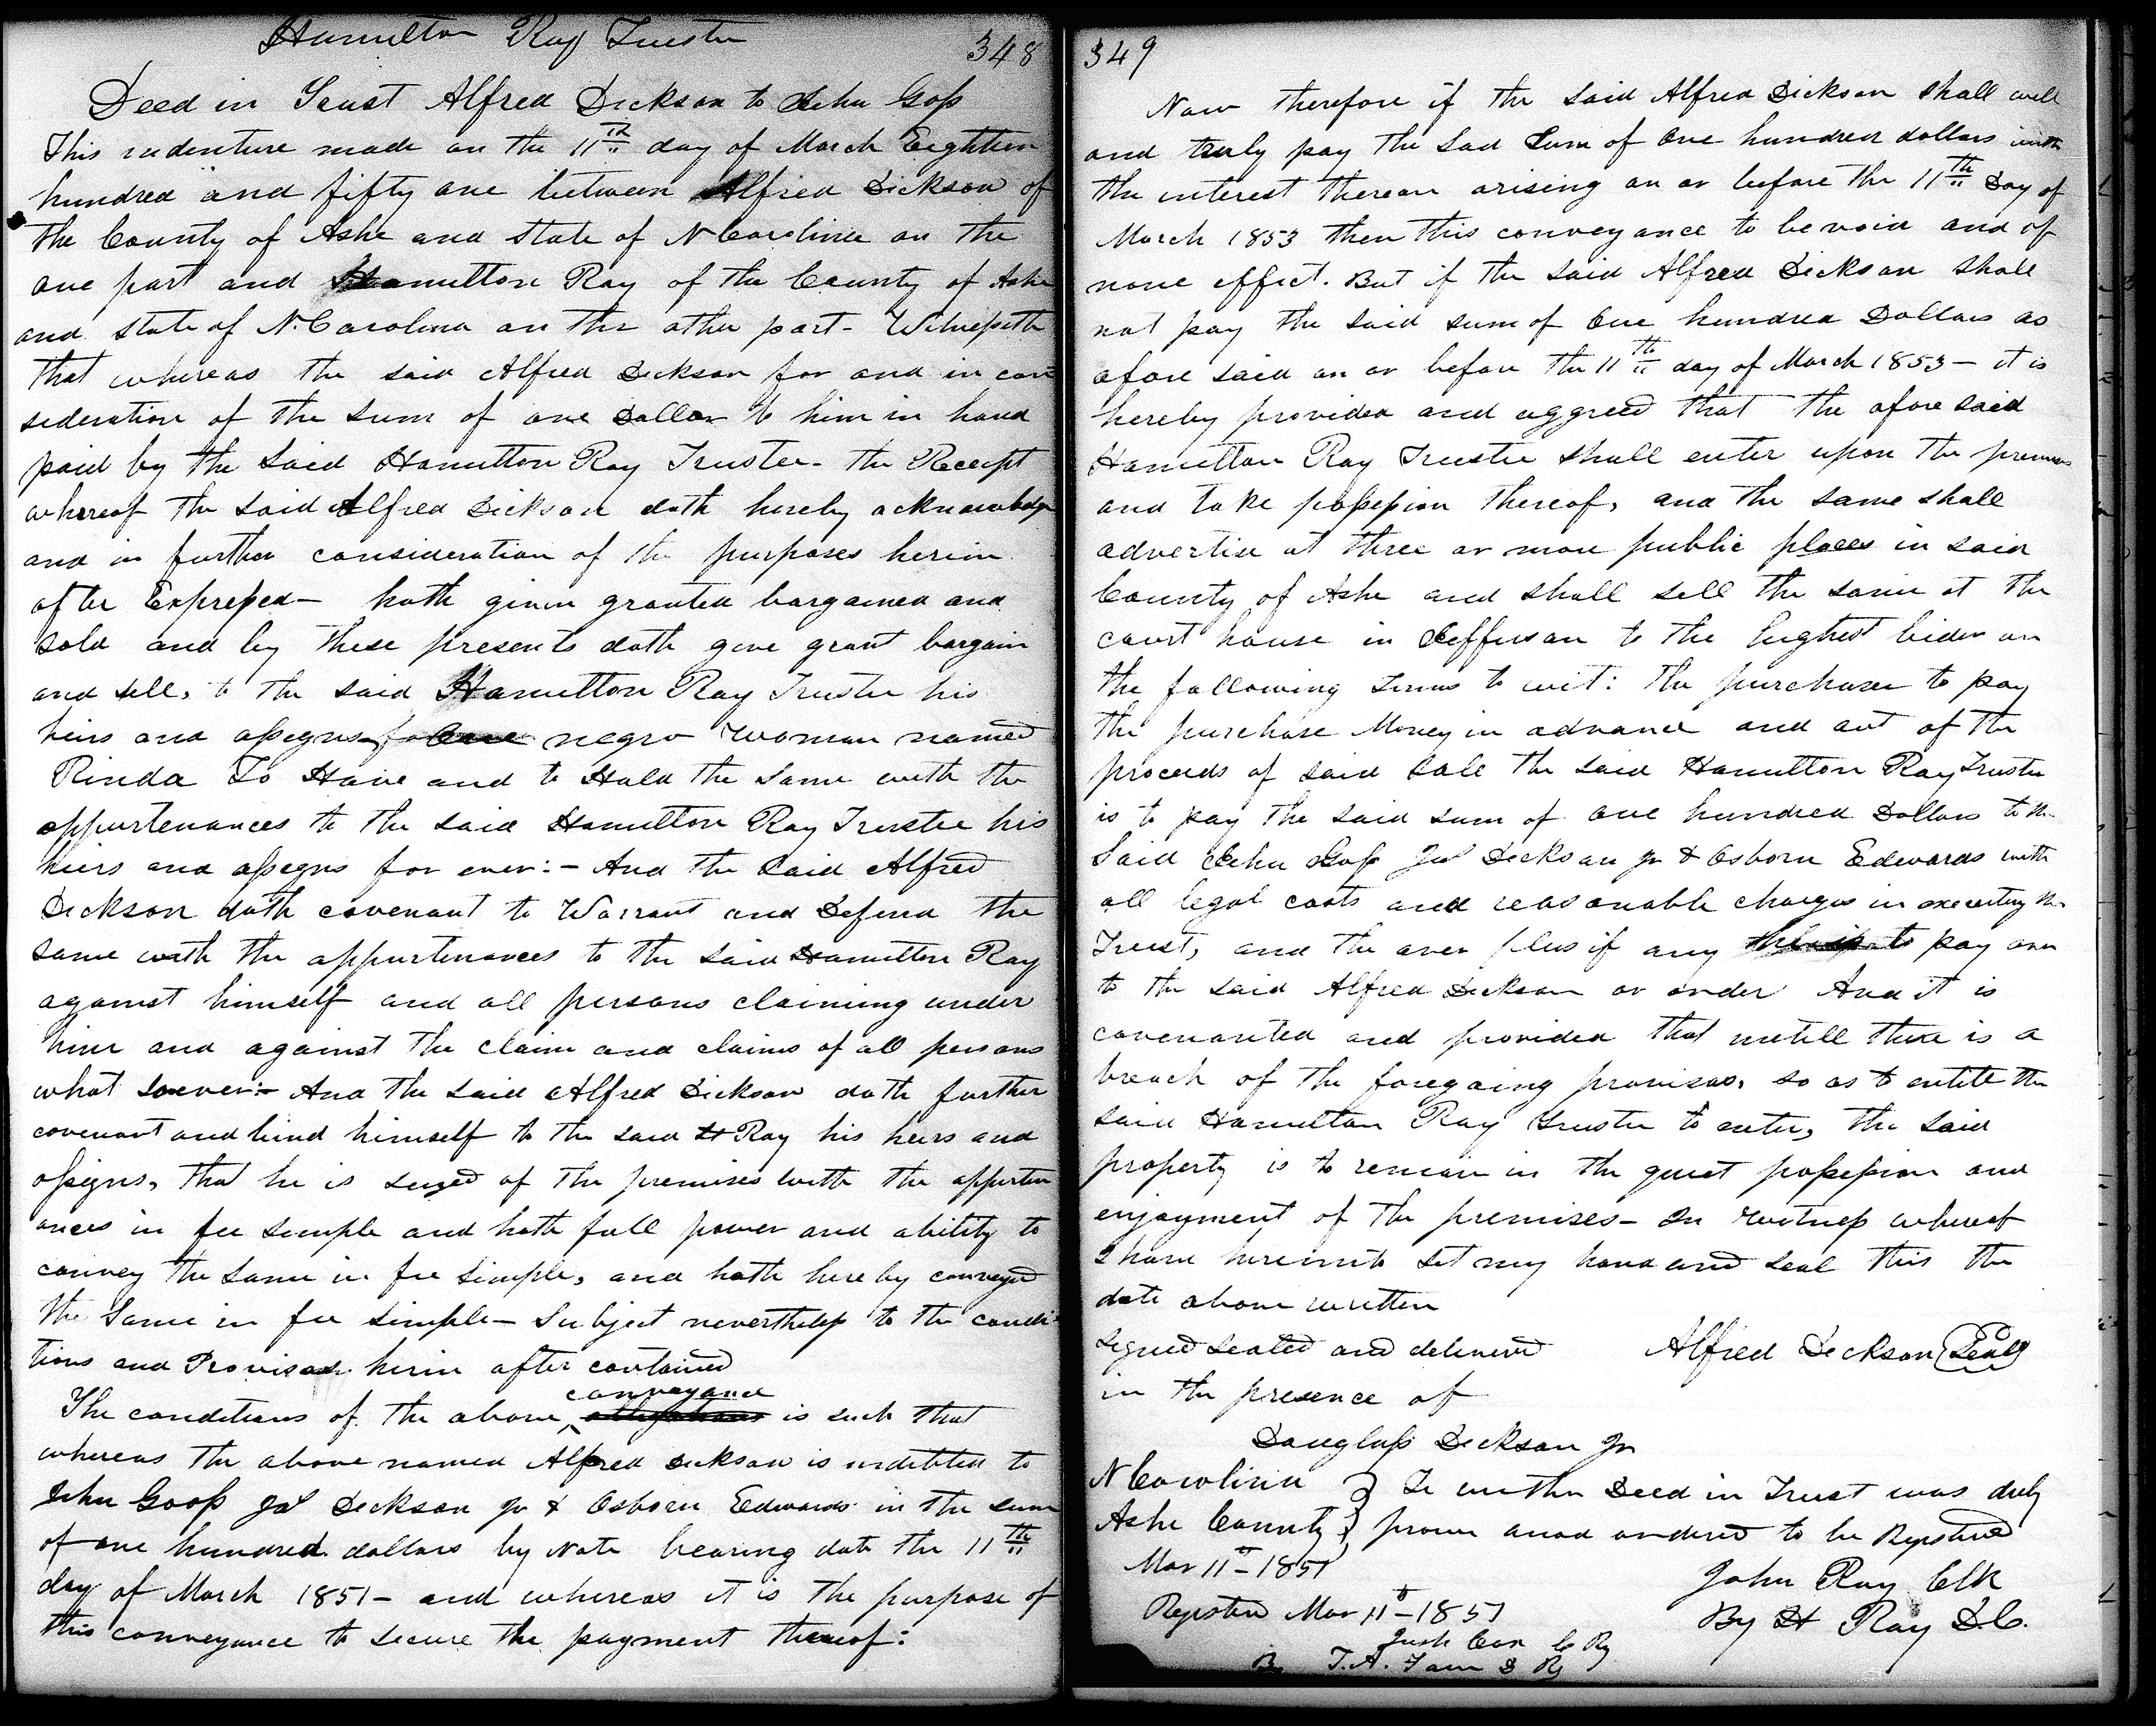 Hamilton Ray Trustee
348
Deed in Trust Alfred Dickson to John Goss
This indenture made on the 11th day of March Eighteen
hundred and fifty one between Alfred Dickson of
the County of Ashe and State of N Carolina on the
one part and Hamilton Ray of the County of Ashe
and state of N. Carolina on the other part - Witnesseth
that whereas the said Alfred Dickson for and in con
sideration of the sum of one Dollar to him in hand
paid by the said Hamilton Ray Trustee - the Receipt
whereof the said Alfred Dickson doth hereby acknowledge
and in further consideration of the purposes herein
after Expressed - hath given granted bargained and
sold and by these presents doth give grant bargain
and sell, to the said Hamilton Ray Trustee his
heirs and assigns one negro woman named
Rinda To Have and to Hold the same with the
appurtenances to the said Hamilton Ray Trustee his
heirs and assigns for ever: - And the said Alfred
Dickson doth covenant to Warrant and Defend the
same with the appurtenances to the said Hamilton Ray
against himself and all persons claiming under
him and against the claim and claims of all persons
what soever: - And the said Alfred Dickson doth further
covenant and bind himself to the said H Ray his heirs and
assigns, that he is seized of the premises with the appurten
ances in fee simple and hath full power and ability to
convey the same in fee simple, and hath hereby conveyed
the same in fee simple - Subject nevertheless to the condi
tions and Provisoes herin after contained
The conditions of the above conveyance is such that
whereas the above named Alfred Dickson is indebted to
John Goss Jas Dickson Jr & Osborn Edwards in the sum
of one hundred dollars by Note bearing date the 11th
day of March 1851 - and whereas it is the purpose of
this conveyance to secure the payment thereof:
349
Now therefore if the said Alfred Dickson shall well
and truly pay the sad sum of One hundred dollars with
the interest thereon arising on or before the 11th Day of
March 1853 then this conveyance to be void and of
none effect. But if the said Alfred Dickson shall
not pay the said sum of One hundred Dollars as
afore said on or before the 11th day of March 1853 - it is
hereby provided and aggreed that the afore said
Hamilton Ray Trustee shall enter upon the premises
and take possession thereof, and the same shall
advertise at three or more public places in said
County of Ashe and shall sell the same at the
court house in Jefferson to the highest bider on
the following terms to wit: the purchaser to pay
the purchase Money in advance and out of the
proceeds of said sale the said Hamilton Ray Trustee
is to pay the said sum of one hundred Dollars to the
said John Goss Jas Dickson Jr & Osborn Edwards with
all legal costs and reasonable charges in executing the
Trust, and the over plus if any to pay over
to the said Alfred Dickson or order And it is
covenanted and provided that untill there is a
breach of the foregoing provisoes, so as to entitle the
said Hamilton Ray Trustee to enter, the said
property is to remain in the quiet possession and
enjoyment of the premises - In witness whereof
I have hereunto set my hand and seal this the
date above written
Signed sealed and delivered Alfred Dickson (Seal)
in the presence of
Douglass Dickson Jr
N Carolina } Te within Deed in Trust was duly
Ashe County } proven and ordered to be Registered
Mar 11th - 1851
John Ray Clk
Registered Mar 11th - 1851
By H Ray D.C.
Josh Cox C Rg
By T.A. D Rg